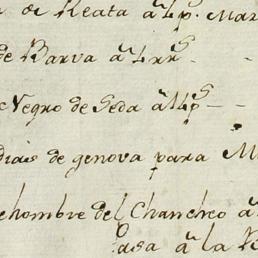 de Reata a Lp.s Mar
de Barva a Lrr.s
Negro de Seda a Lp.s
dias de genova para M
ehombre del Chancheo a
Casa a la R